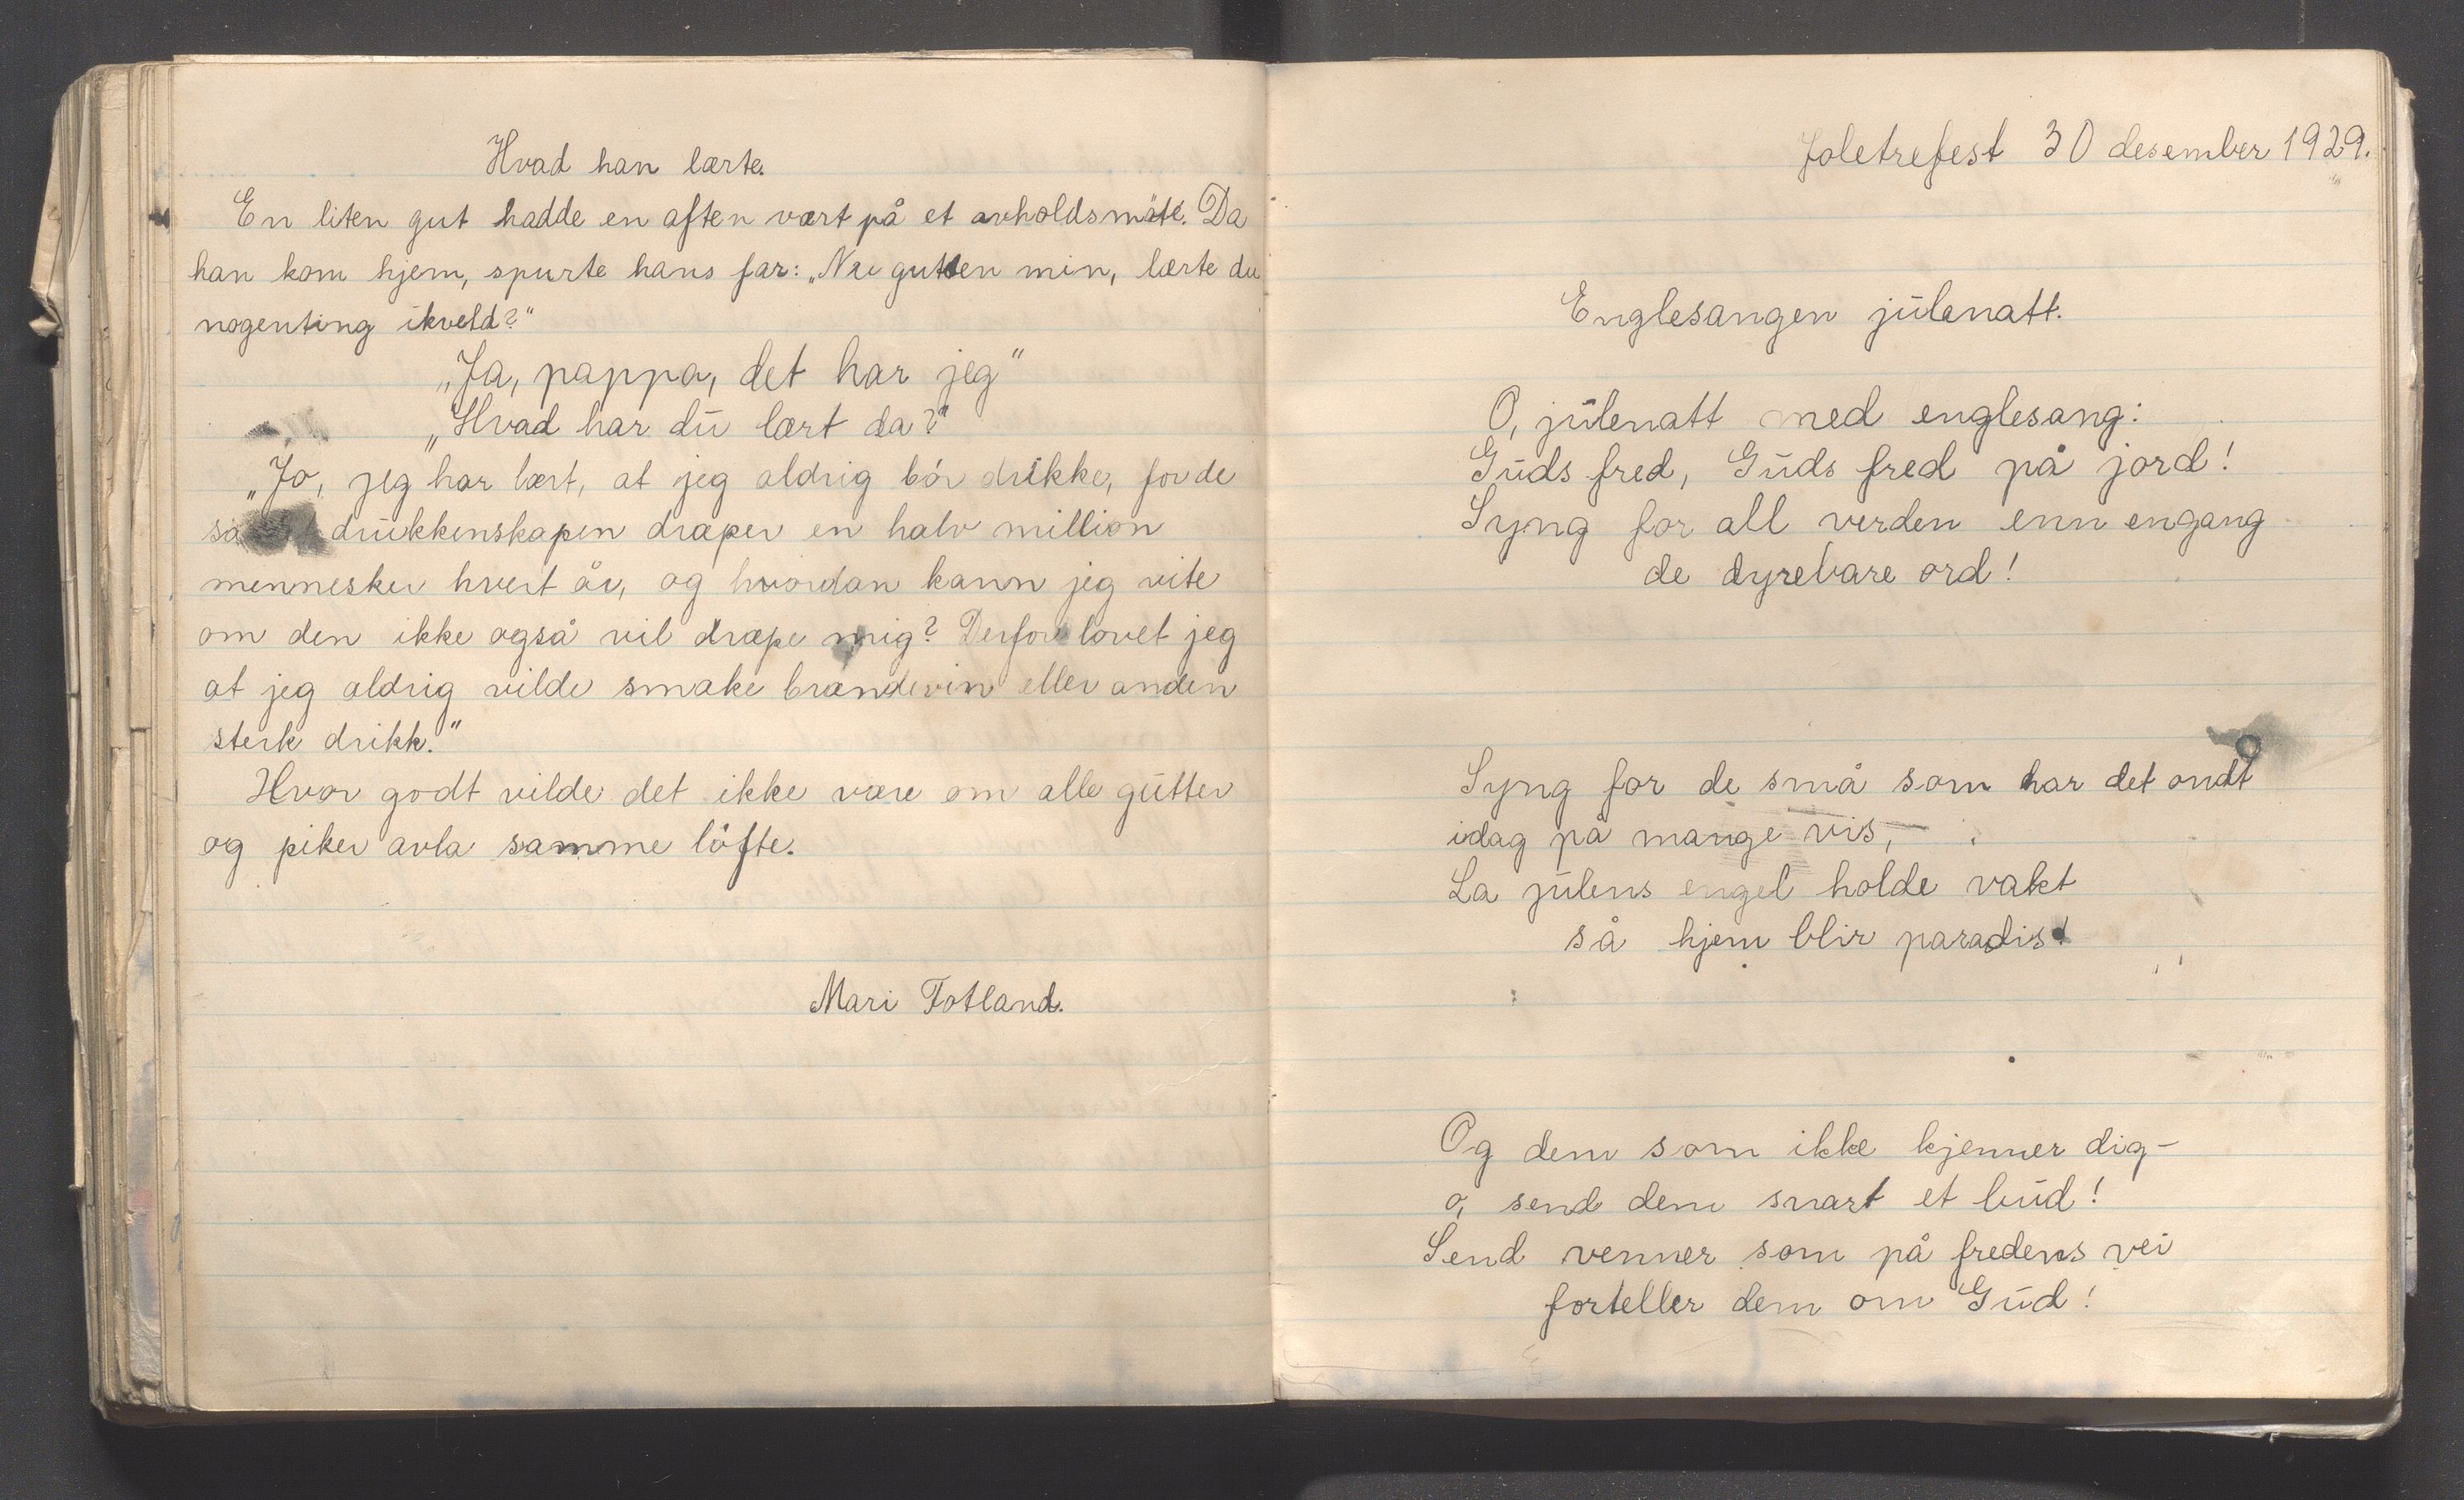 Hvad han lærte.
En liten gut hadde en aften vært på et avholdsmöte. Da
han kom hjem, spurte hans far: „Nu gutten min, lærte du
nogenting ikveld?"
„Ja, pappa, det har jeg"
„Hvad har dū lært da?"
„Jo, jeg har lært, at jeg aldrig bör drikke, for de
sa drūkkenskapen dræper en halv million
mennesker hvert år, og hvordan kann jeg vite
om den ikke også vil dræpe mig? Derfor lovet jeg
at jeg aldrig vilde smake brændevin eller anden
sterk drikk."
Hvor godt vilde det ikke være om alle gūtter
og piker avla samme löfte.
Mari Fotland.
Joletrefest 30 desember 1929.
Englesangen jūlenatt.
O, jūlenatt med englesang:
Gūds fred, Gūds fred på jord!
Syng for all verden enn engang
de dyrebare ord!
Syng for de små som har det ondt
idag på mange vis,
La jūlens engel holde vakt
så hjem blir paradis!
Og dem som ikke kjenner dig-
o, send dem snart et būd!
Send venner som på fredens vei
forteller dem om Gūd!